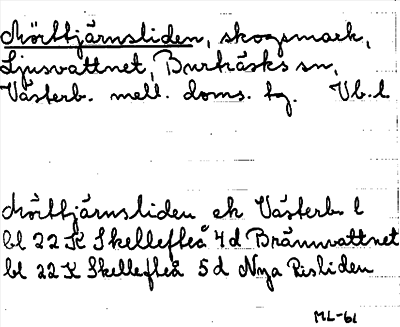 Mörttjärnsliden, skogsmark,
Ljusvattnet, Burträsks sn,
Västerb. mell. doms. tg. Vb. l
Mörttjärnsliden ek Västerb. l
bl 22 K Skellefteå 4 d Brännvattnet
bl 22 K Skellefteå 5 d Nya Risliden
ML-61